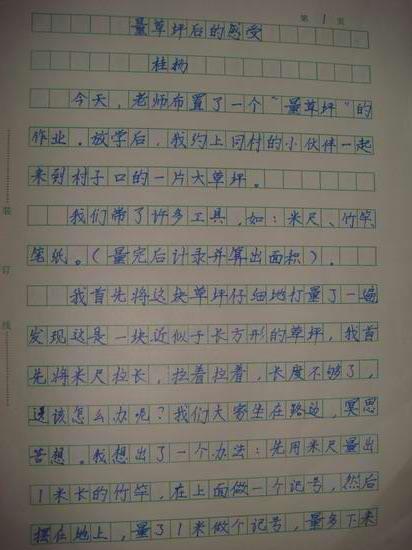 第 1 页
量草坪后的感受
桂杨
今天，老师布置了一个“量草坪”的
作业。放学后，我约上同村的小伙伴一起
来到村子口的一片大草坪。
我们带了许多工具，如：米尺、竹竿
笔纸。（量完后计录并算出面积）．
我首先将这块草坪仔细地打量了一遍
发现这是一块近似于长方形的草坪，我首
先将米尺拉长，拉着拉着，长度不够了，
这该怎么办呢？我们大家坐在路边，冥思
苦想。我想出了一个办法：先用米尺量出
1米长的竹竿，在上面做一个记号，然后
摆在地上，量了1米做个记号，量多下来
装
订
线